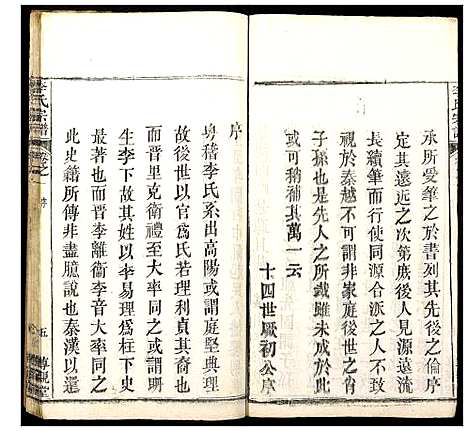 承所爰筆之於書列其先後之倫序
定其遠近之次第庶後人溯源遠流
長續筆而行使同源合派之人不致
視於秦越不可謂非家庭後嗣之肖
子孫也是先人之所戴雖未成於此
或可稍補其萬一云
十四世厥初公序
李氏宗譜
序
粤稽李氏系出高陽或謂庭堅典理
故後世以官爲氏若理利貞其裔也
而晋里克衛禮至大率同之或謂明
生李下故其姓以李易理爲柱下史
最著也而晋李離衛李音大率同之
此史籍所傳非盡臆說也秦漢以還
李氏宗譜
卷之
序
五
傳觀堂